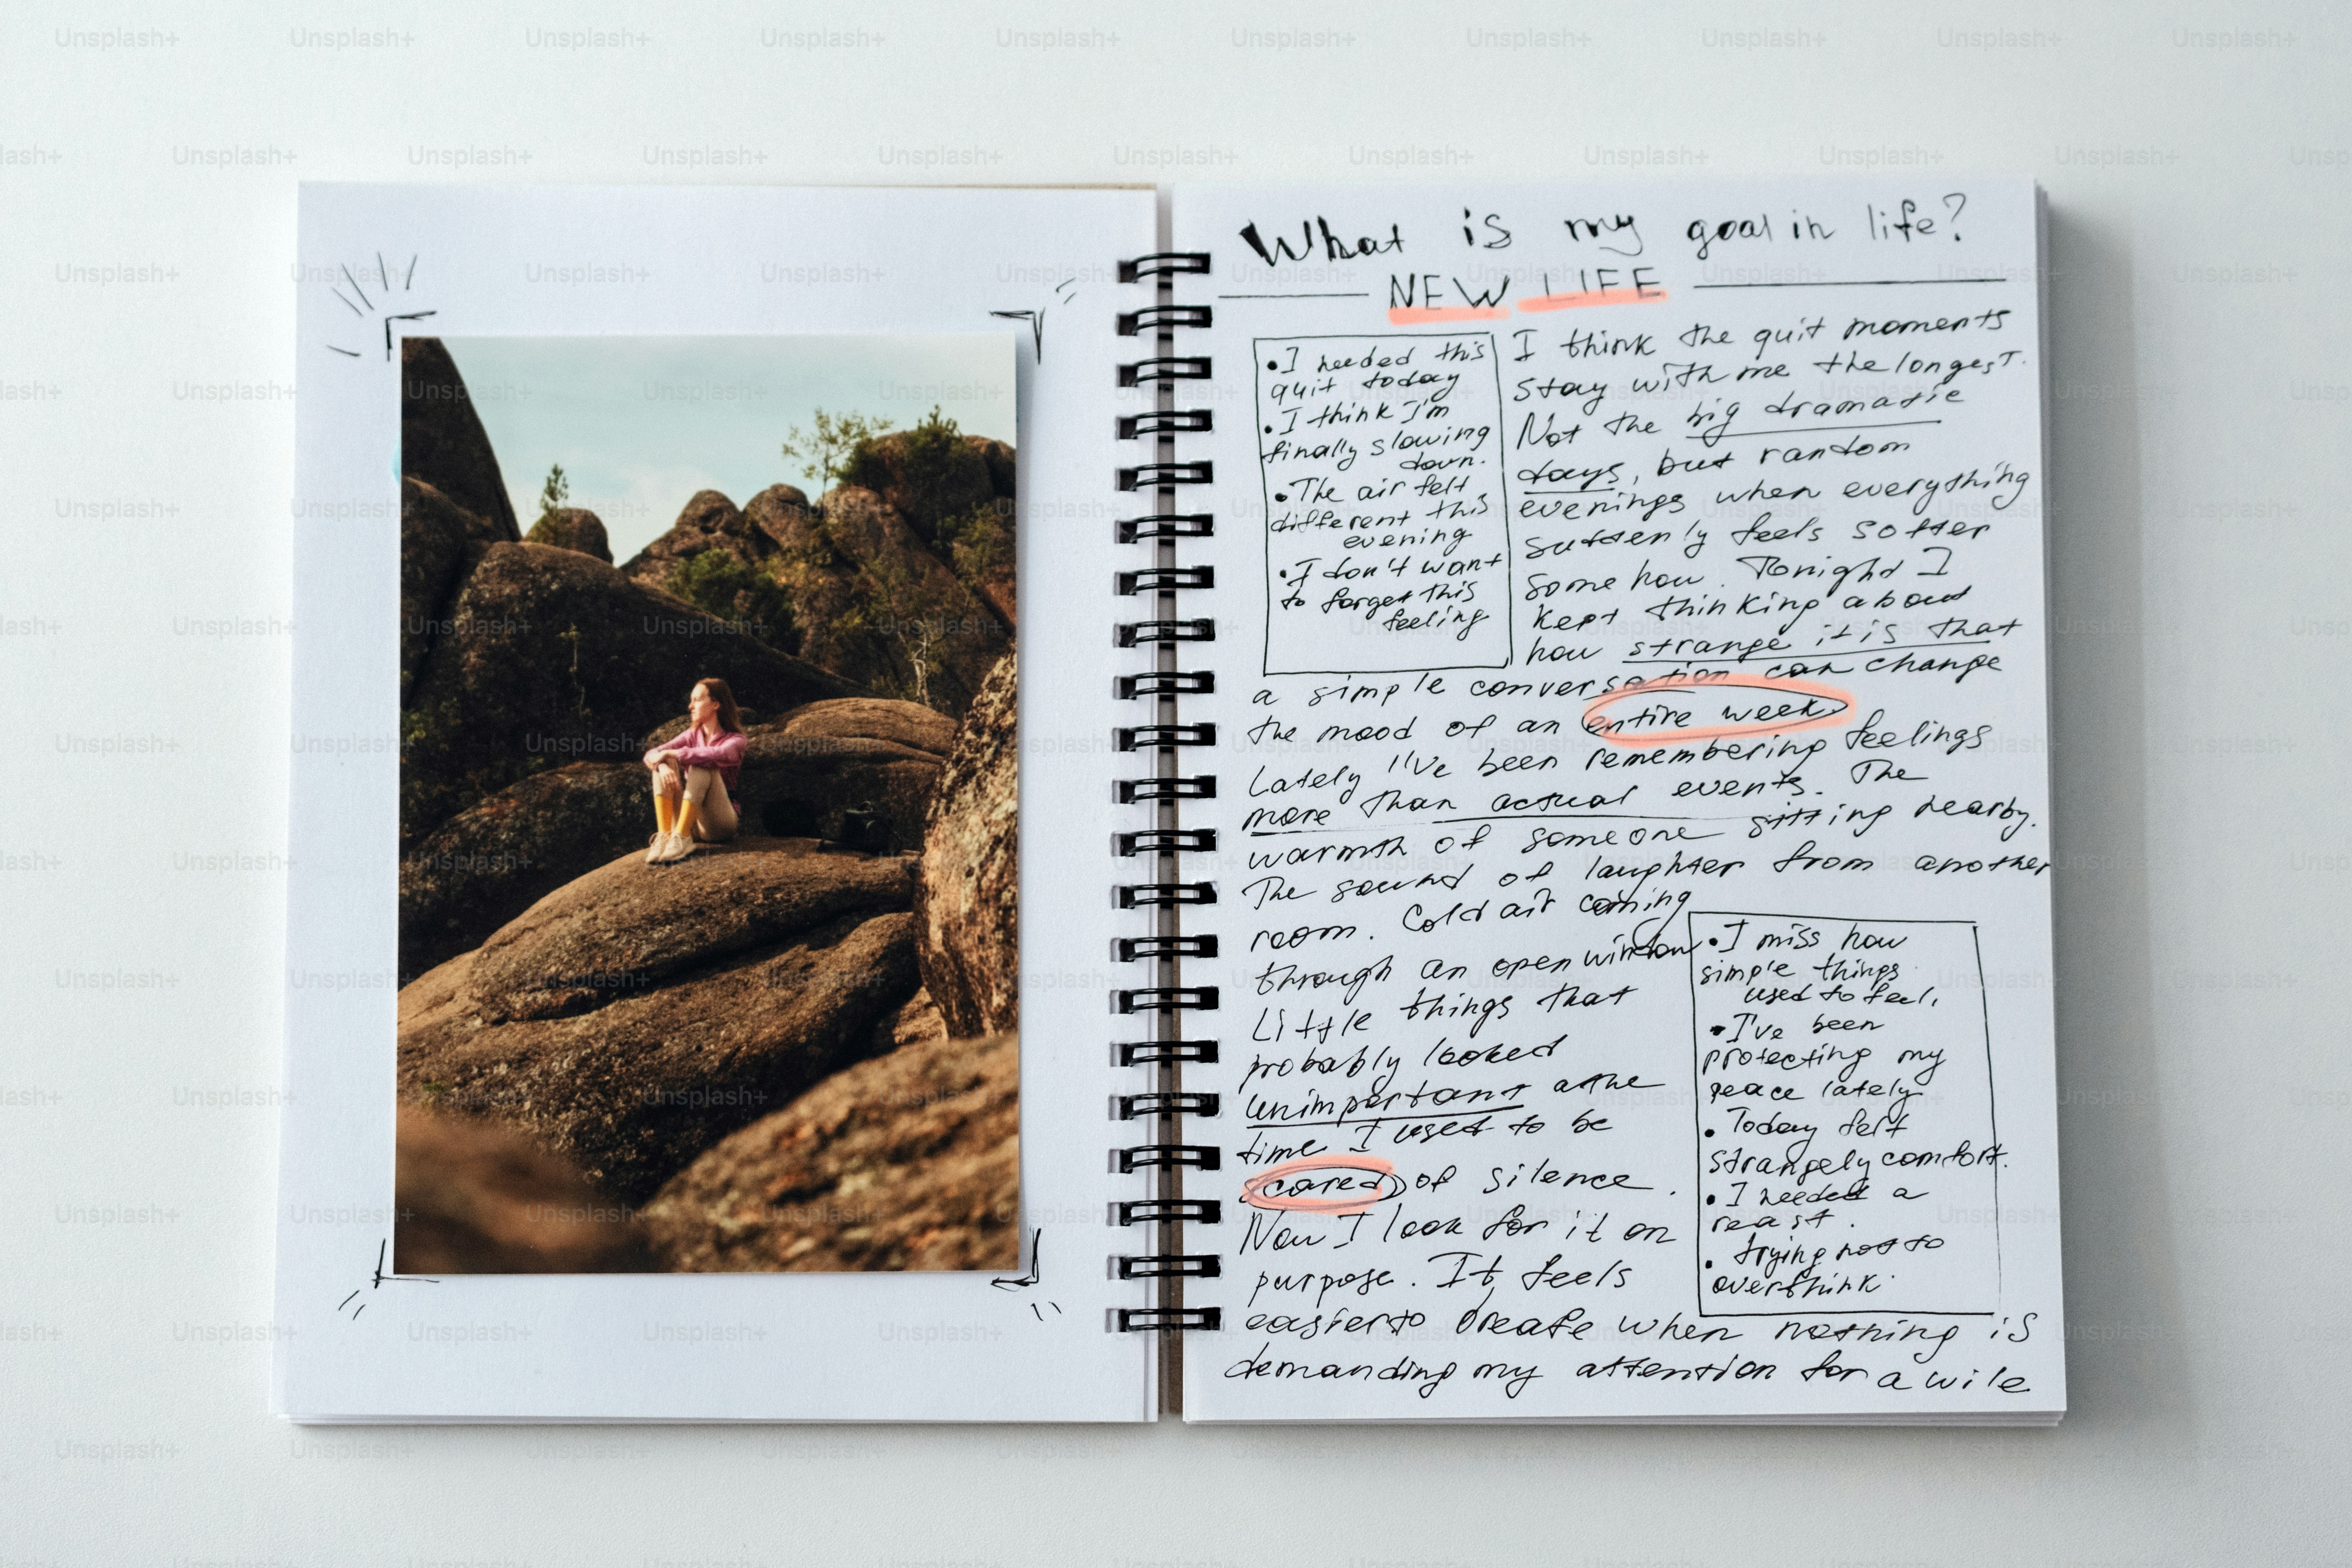 What is my goal in life?
NEW LIFE
• I needed this
quit today
• I think I'm
finally slowing
down.
• The air felt
different this
evening
• I don't want
to forget this
feeling
I think the quit moments
stay with me the longest.
Not the big dramatic
days, but random
evenings when everything
suddenly feels softer
somehow. Tonight I
kept thinking about
how strange it is that
a simple conversation can change
the mood of an entire week.
Lately I've been remembering feelings
more than actual events. The
warmth of someone sitting nearby.
The sound of laughter from another
room. Cold air coming
through an open window
Little things that
probably looked
unimportant a the
time I used to be
scared of silence.
Now I look for it on
purpose. It feels
easier to create when nothing is
demanding my attention for a wile
• I miss how
simple things
used to feel.
• I've been
protecting my
peace lately
• Today felt
strangely comfort.
• I needed a
reast.
• trying not to
overthink.
Unsplash+